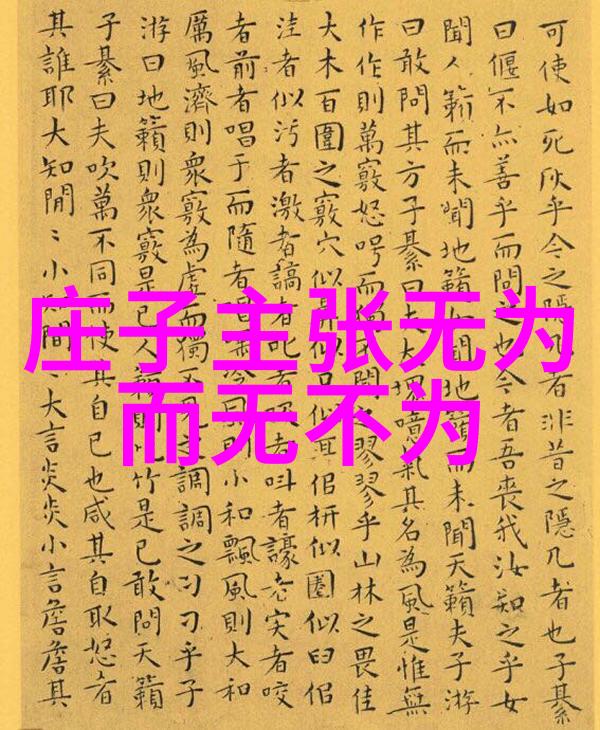 可使如死灰乎今之隱者非昔之隱几者也子綦
曰偃不亦善乎而問之也今者吾喪我汝知之乎女
聞人籟而未聞地籟女聞地籟而未聞天籟夫子游
曰敢問其方子綦曰夫大塊噫氣其名為風是惟無
作作則萬竅怒呺而獨不聞之翏翏乎山林之畏佳
大木百圍之竅穴似鼻似口似耳佀枅似圈似臼佀
洼者似污者激者謞者叱者吸者叫者譹者宎者咬
者前者唱于而隨者唱喁泠風則小和飄風則大和
厲風濟則衆竅為虛而獨不見之調調之刁刁乎子
游曰地籟則衆竅是已人籟則比竹是已敢問天籟
子綦曰夫吹萬不同而使其自已也咸其自取怒者
其誰耶大知閒〻小知間〻大言炎炎小言詹詹其
庄子主张无为
而无不为